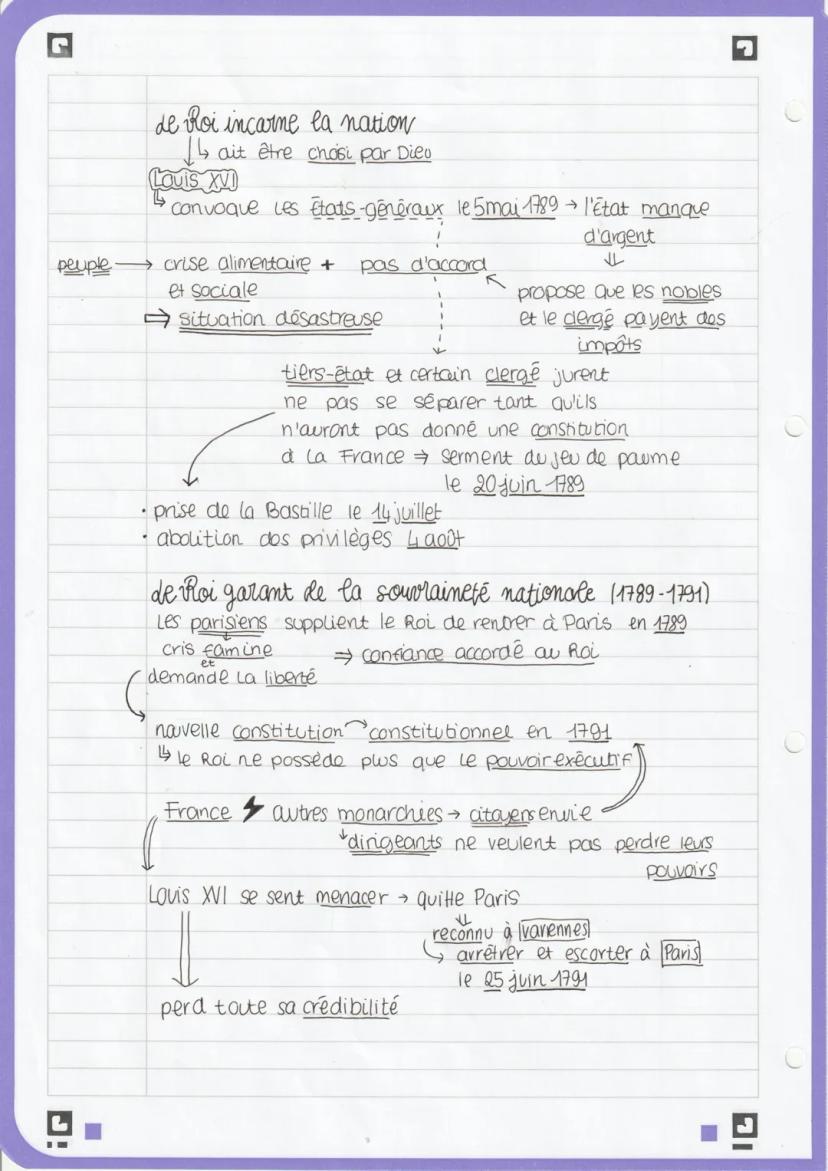 Le Roi incarne la nation
↳ ait être choisi par Dieu
Louis XVI
↳ convoque les États-généraux le 5 mai 1789 → l'État manque
d'argent
⇓
peuple → crise alimentaire + pas d'accord
et sociale
propose que les nobles
⇒ situation désastreuse
et le clergé payent des
impôts
tiers-état et certain clergé jurent
ne pas se séparer tant qu'ils
n'auront pas donné une constitution
à la France ⇒ serment du jeu de paume
le 20 juin 1789
· prise de la Bastille le 14 juillet
· abolition des privilèges 4 août
Le Roi garant de la souvraineté nationale (1789-1791)
Les parisiens supplient le Roi de rentrer à Paris en 1789
cris famine ⇒ confiance accordé au Roi
et
demande la liberté
nouvelle constitution → constitutionnel en 1791
↳ le Roi ne possède plus que le pouvoir exécutif
France ⚡ autres monarchies → citoyens envie
↓ dirigeants ne veulent pas perdre leurs
pouvoirs
Louis XVI se sent menacer → quitte Paris
⇓
reconnu à Varennes
↳ arrêtrer et escorter à Paris
le 25 juin 1791
perd toute sa crédibilité